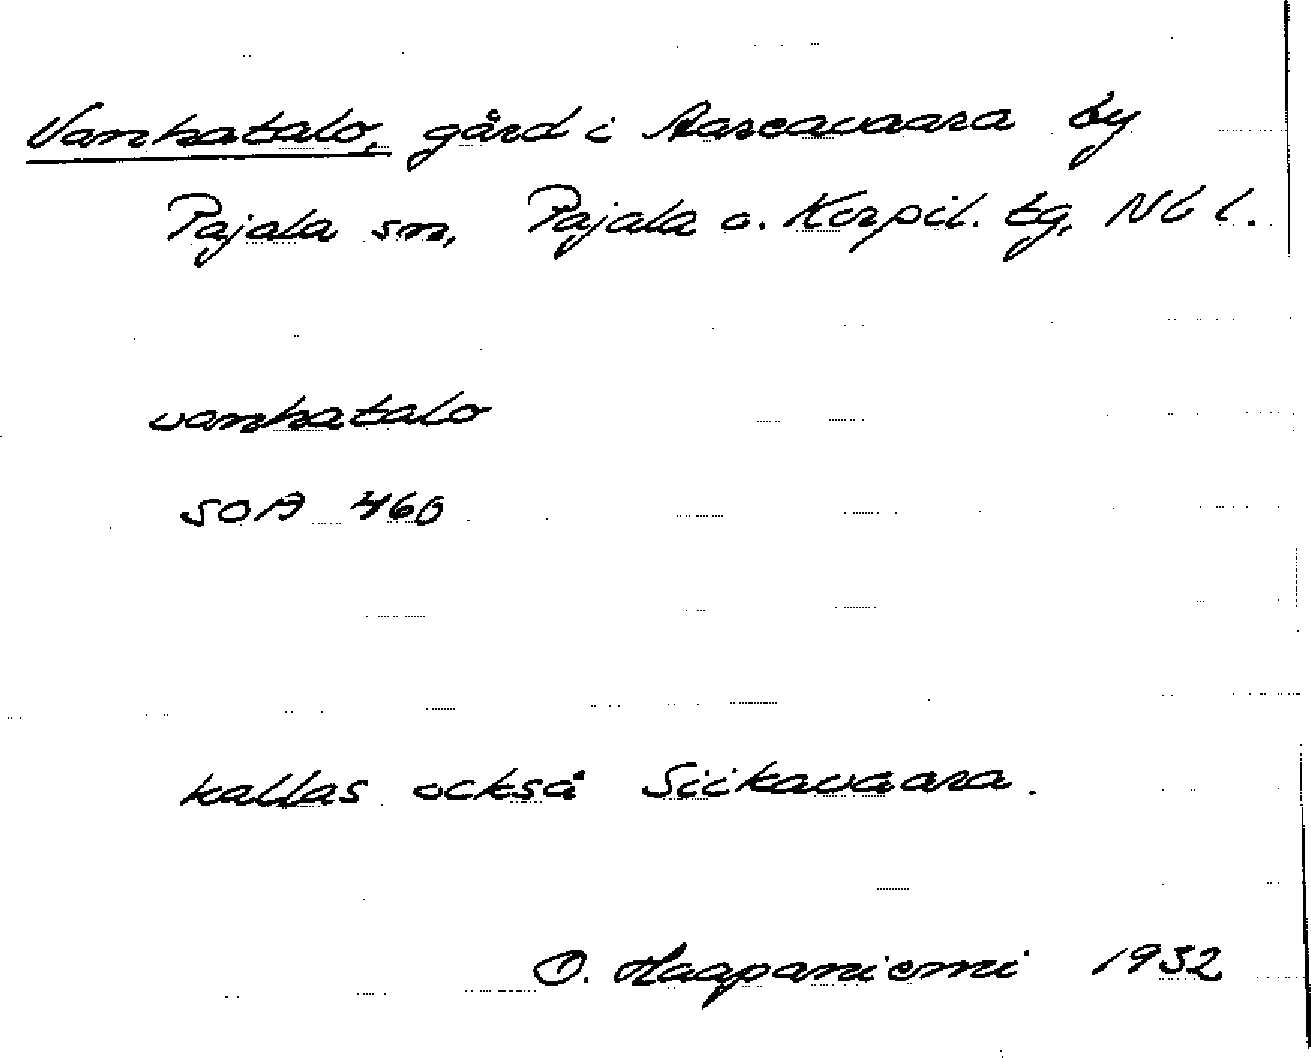 Vanhatalo, gård i Aareavaara by
Pajala sn, Pajala o. Korpil. tg, Nb l.
vanhatalo
SOA 460
kallas också Siikavaara.
O. Haapaniemi 1932